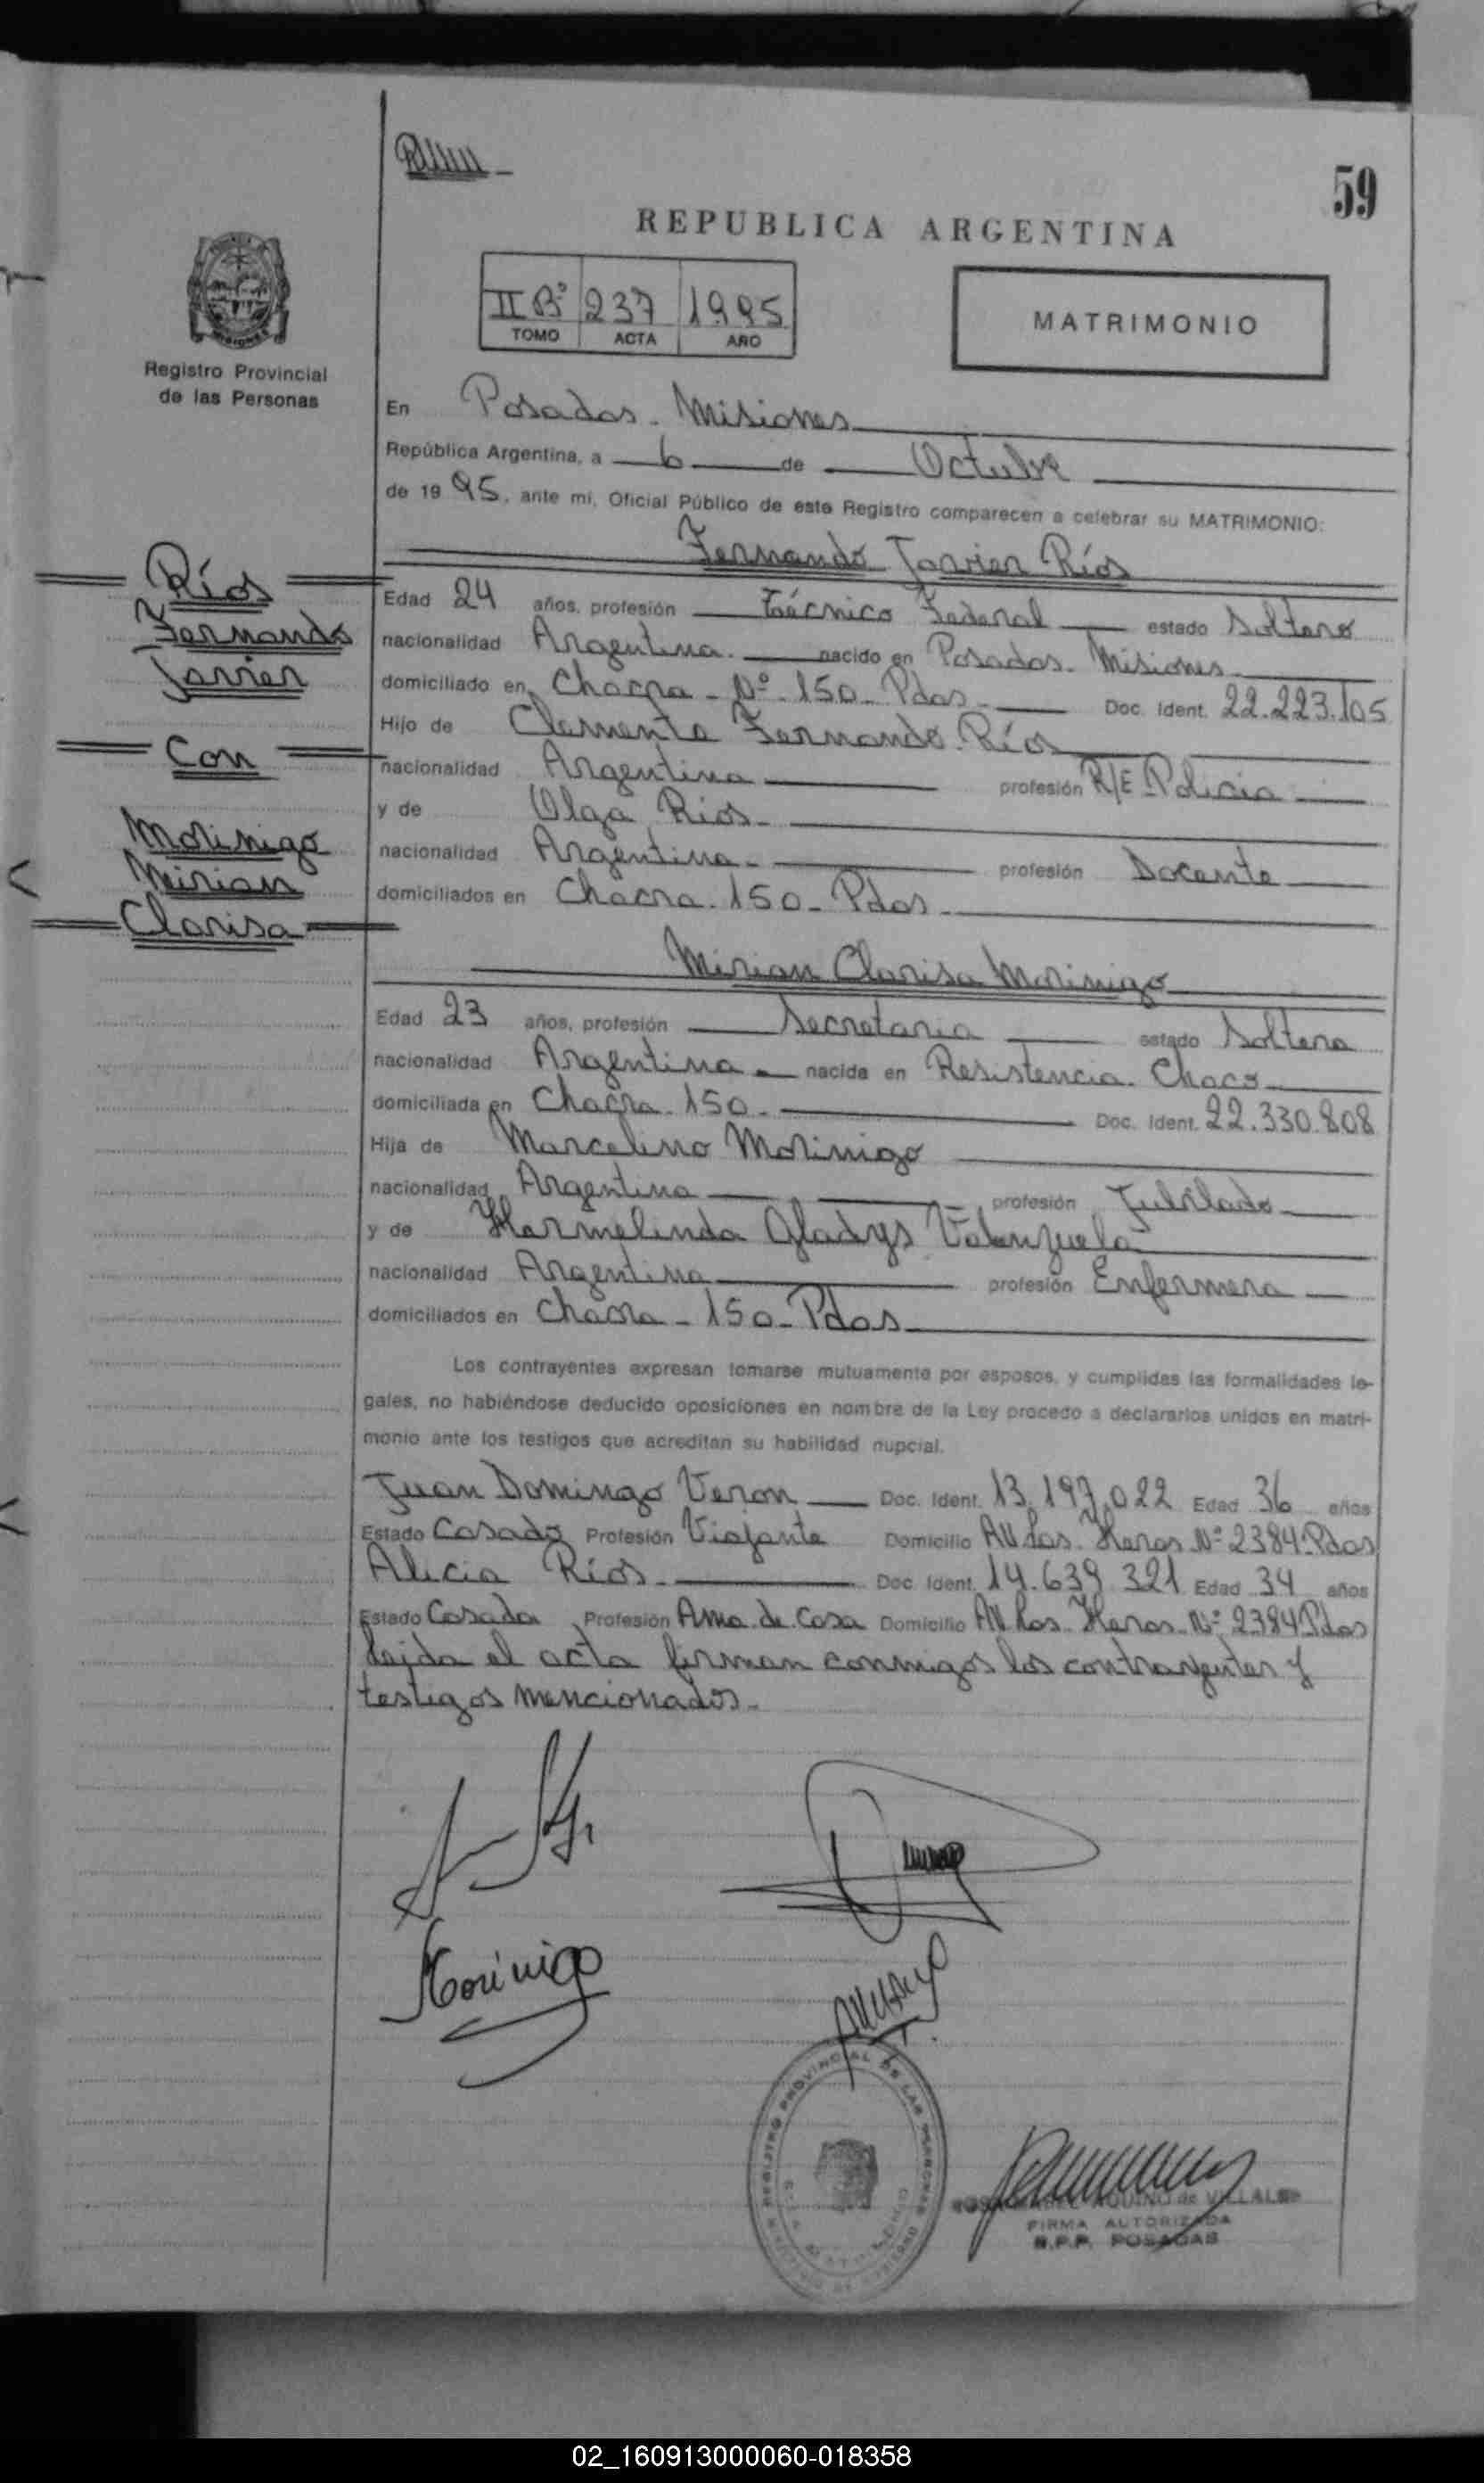 59
REPUBLICA ARGENTINA
II Bº 237 1995
TOMO ACTA AÑO
MATRIMONIO
Registro Provincial
de las Personas
En Posadas - Misiones
República Argentina, a 6 de Octubre
de 1995, ante mí, Oficial Público de este Registro comparecen a celebrar su MATRIMONIO:
Fernando Javier Ríos
Ríos
Fernando
Javier
Con
Morinigo
Mirian
Clarisa
Edad 24 años, profesión Técnico Federal estado Soltero
nacionalidad Argentina. nacido en Posadas - Misiones
domiciliado en Chacra - Nº 150 - Pdas - Doc. Ident. 22.223.105
Hijo de Clemente Fernando Ríos
nacionalidad Argentina profesión R/E Policia
y de Olga Rios -
nacionalidad Argentina - profesión Docente
domiciliados en Chacra. 150 - Pdas -
Mirian Clarisa Morinigo
Edad 23 años, profesión Secretaria estado Soltera
nacionalidad Argentina - nacida en Resistencia - Chaco
domiciliada en Chacra. 150 - Doc. Ident. 22.330.808
Hija de Marcelino Morinigo
nacionalidad Argentina profesión Jubilado
y de Hermelinda Gladys Valenzuela
nacionalidad Argentina profesión Enfermera
domiciliados en Chacra - 150 - Pdas -
Los contrayentes expresan tomarse mutuamente por esposos, y cumplidas las formalidades le-
gales, no habiéndose deducido oposiciones en nombre de la Ley procedo a declararlos unidos en matri-
monio ante los testigos que acreditan su habilidad nupcial.
Juan Domingo Veron Doc. Ident. 13.197.022 Edad 36 años
Estado Casado Profesión Viajante Domicilio AV. Las Heras Nº 2384 Pdas
Alicia Ríos - Doc. Ident. 14.639.321 Edad 34 años
Estado Casada Profesión Ama de Casa Domicilio AV. Las Heras - Nº 2384 Pdas
Leida el acta firman conmigos los contrayentes y
testigos mencionados -
Morinigo
REGISTRO PROVINCIAL DE LAS PERSONAS
AQUINO de VILLALBA
FIRMA AUTORIZADA
R.P.P. POSADAS
02_160913000060-018358